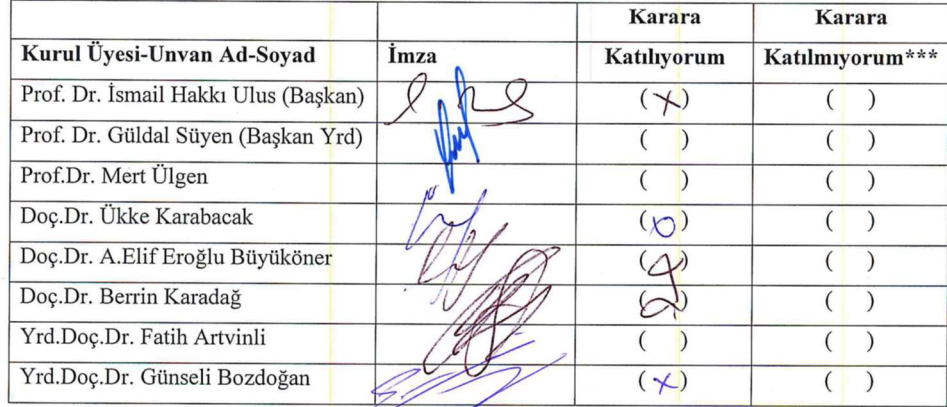 Karara Karara
Kurul Üyesi-Unvan Ad-Soyad İmza Katılıyorum Katılmıyorum***
Prof. Dr. İsmail Hakkı Ulus (Başkan) (X) ( )
Prof. Dr. Güldal Süyen (Başkan Yrd) ( ) ( )
Prof.Dr. Mert Ülgen ( ) ( )
Doç.Dr. Ükke Karabacak ( ) ( )
Doç.Dr. A.Elif Eroğlu Büyüköner ( ) ( )
Doç.Dr. Berrin Karadağ ( ) ( )
Yrd.Doç.Dr. Fatih Artvinli ( ) ( )
Yrd.Doç.Dr. Günseli Bozdoğan (X) ( )